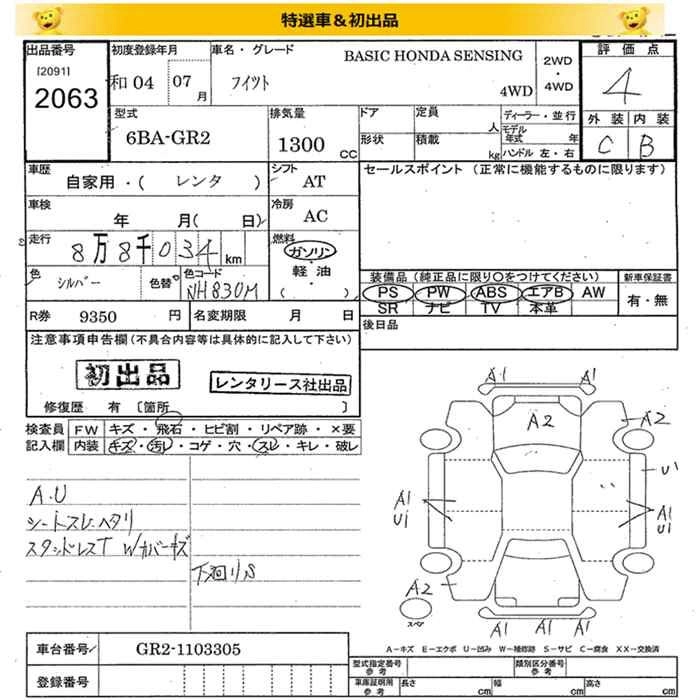 特選車&初出品
出品番号 初度登録年月 車名・グレード BASIC HONDA SENSING 2WD・4WD 評価点
[2091] 2063 和04 07月 フィット 4WD 4
型式 排気量 ドア 定員 人 ディーラー・並行 外装 内装
6BA-GR2 1300CC 形状 積載 kg モデル年式 年 ハンドル 左・右 C B
車歴 自家用・( レンタ ) シフト AT セールスポイント (正常に機能するものに限ります)
車検 年 月( 日) 冷房 AC
走行 8万8千034km 燃料 ガソリン 軽油 ( ・ )
色 シルバー 色替 色コード NH830M 装備品 (純正品に限り○をつけてください) 新車保証書
PS PW ABS エアB AW 有・無
SR ナビ TV 本革
R券 9350 円 名変期限 月 日 後日品
注意事項申告欄(不具合内容等は具体的に記入して下さい)
初出品 レンタリース社出品
修復歴 有 [箇所 ]
検査員記入欄 FW キズ・飛石・ヒビ割・リペア跡・×要
内装 キズ・汚レ・コゲ・穴・スレ・キレ・破レ
A.U
シートスレ ヘタリ
スタッドレスT Wカバーキズ
下廻りS
A1 A1
A2 A2
A1 U1 A1 U1
A2
スペア
A1 A1 A1
A-キズ E-エクボ U-凹み W-補修跡 S-サビ C-腐食 XX-交換済
車台番号 GR2-1103305
登録番号
型式指定番号 参考 類別区分番号 参考
車庫証明用 参考 長さ cm 幅 cm 高さ cm